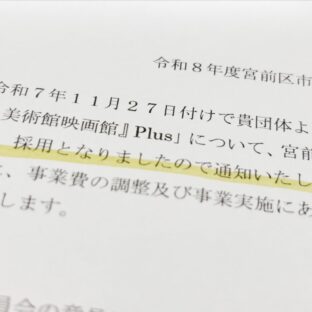 令和８年度宮前区市
令和７年１１月２７日付けで貴団体よ
美術館映画館』Plus」について、宮前
採用となりましたので通知いたし
、事業費の調整及び事業実施にあ
します。